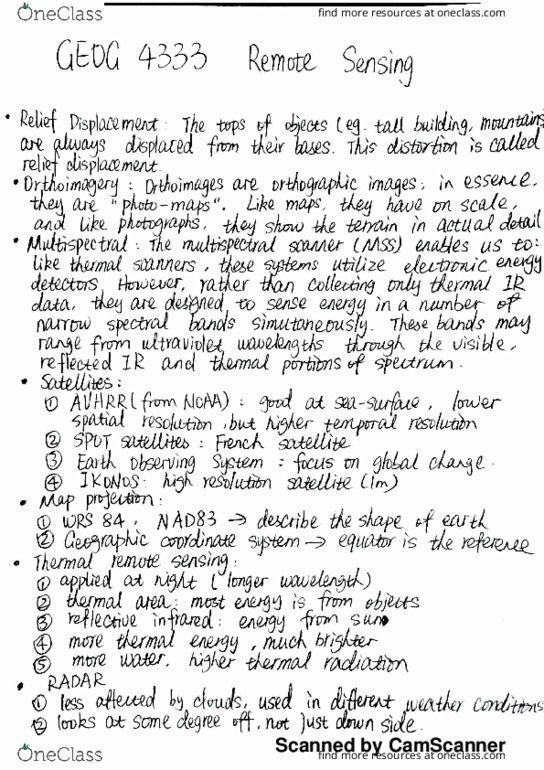 OneClass
find more resources at oneclass.com
GEOG 4333 Remote Sensing
• Relief Displacement: The tops of objects (eg. tall building, mountains
are always displaced from their bases. This distortion is called
relief displacement.
• Orthoimagery: Orthoimages are orthographic images; in essence,
they are "photo-maps". Like maps, they have on scale,
and like photographs, they show the terrain in actual detail
• Multispectral: The multispectral scanner (MSS) enables us to:
like thermal scanners, these systems utilize electronic energy
detectors, However, rather than collecting only thermal IR
data, they are designed to sense energy in a number of
narrow spectral bands simutaneously. These bands may
range from ultraviolet wavelengths through the visible,
reflected IR and thermal portions of spectrum.
• Satellites:
① AVHRR (from NOAA): good at sea-surface, lower
spatial resolution, but higher temporal resolution
② SPOT satellites: French satellite
③ Earth Observing System: focus on global change.
④ IKONOS: high resolution satellite (1m)
• Map projection:
① WRS 84, NAD83 → describe the shape of earth
② Geographic coordinate system → equator is the reference
• Thermal remote sensing:
① applied at night (longer wavelength)
② thermal area: most energy is from objects
③ reflective infrared: energy from sun
④ more thermal energy, much brighter
⑤ more water, higher thermal radiation
• RADAR
① less affected by clouds, used in different weather conditions
② looks at some degree off, not just down side.
Scanned by CamScanner
OneClass
find more resources at oneclass.com